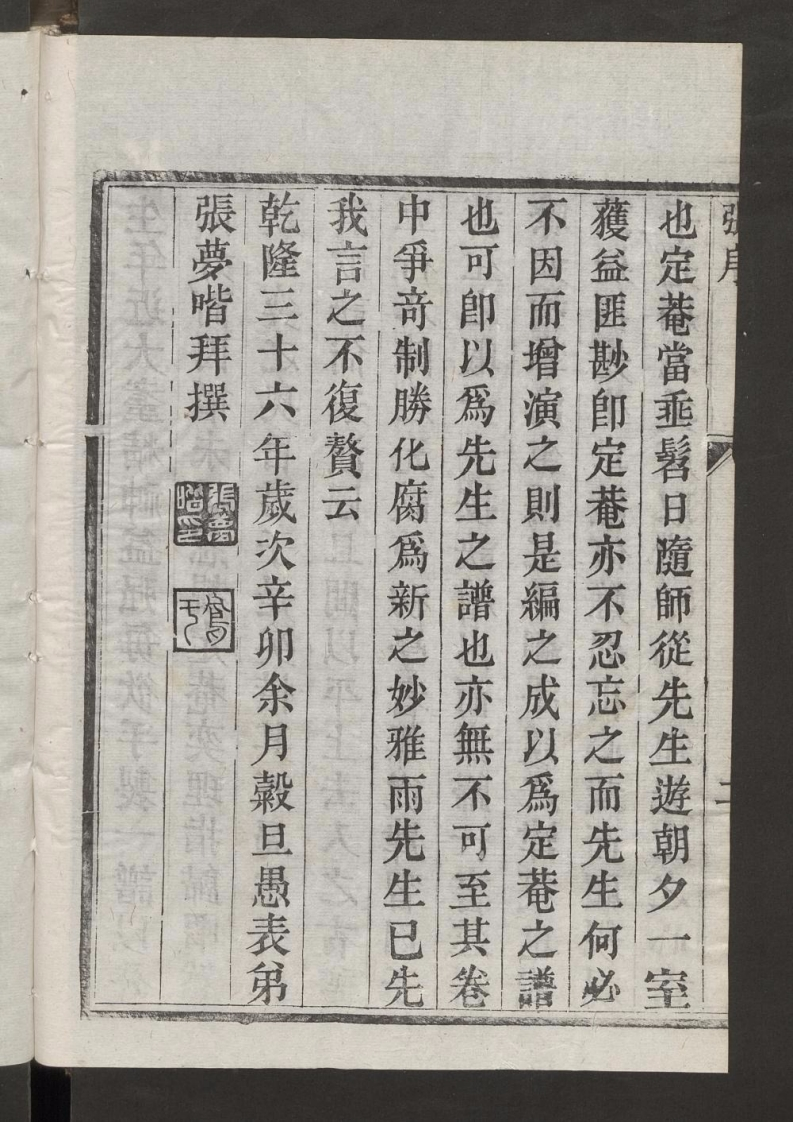 張序
二
也定菴當垂髫日隨師從先生遊朝夕一室
獲益匪尠卽定菴亦不忍忘之而先生何必
不因而增演之則是編之成以爲定菴之譜
也可卽以爲先生之譜也亦無不可至其卷
中爭竒制勝化腐爲新之妙雅雨先生已先
我言之不復贅云
乾隆三十六年歲次辛卯余月榖旦愚表弟
張夢喈拜撰
張夢喈印